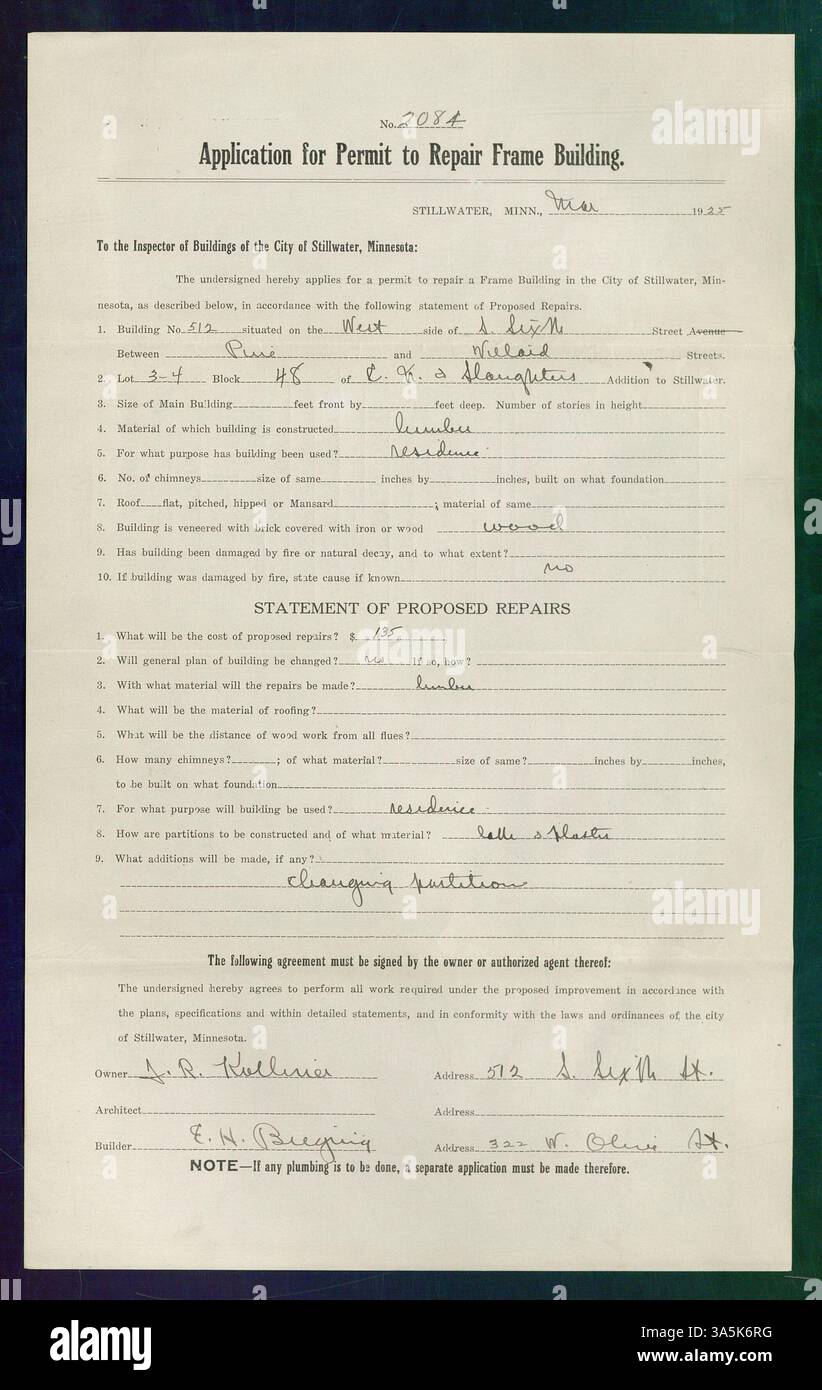 No. 2084
Application for Permit to Repair Frame Building.
STILLWATER, MINN., Mar 1925
To the Inspector of Buildings of the City of Stillwater, Minnesota:
The undersigned hereby applies for a permit to repair a Frame Building in the City of Stillwater, Min-
nesota, as described below, in accordance with the following statement of Proposed Repairs.
1. Building No. 512 situated on the West side of S. Sixth Street Avenue
Between Pine and Willard Streets.
2. Lot 3-4 Block 48 of C. K. & Slaughters Addition to Stillwater.
3. Size of Main Building feet front by feet deep. Number of stories in height
4. Material of which building is constructed lumber
5. For what purpose has building been used? residence
6. No. of chimneys size of same inches by inches, built on what foundation
7. Roof flat, pitched, hipped or Mansard ; material of same
8. Building is veneered with brick covered with iron or wood wood
9. Has building been damaged by fire or natural decay, and to what extent?
no
10. If building was damaged by fire, state cause if known
STATEMENT OF PROPOSED REPAIRS
1. What will be the cost of proposed repairs? $ 135
2. Will general plan of building be changed? no If so, how?
3. With what material will the repairs be made? lumber
4. What will be the material of roofing?
5. What will be the distance of wood work from all flues?
6. How many chimneys? ; of what material? size of same? inches by inches,
to be built on what foundation
7. For what purpose will building be used? residence
8. How are partitions to be constructed and of what material? lathe & plaster
9. What additions will be made, if any?
changing partition
The following agreement must be signed by the owner or authorized agent thereof:
The undersigned hereby agrees to perform all work required under the proposed improvement in accordance with
the plans, specifications and within detailed statements, and in conformity with the laws and ordinances of the city
of Stillwater, Minnesota.
Owner J. R. Kolliner Address 512 S. Sixth St.
Architect Address
Builder E. H. Address 322 W. Olive St.
NOTE—If any plumbing is to be done, a separate application must be made therefore.
alamy
Image ID: 3A5K6RG
www.alamy.com